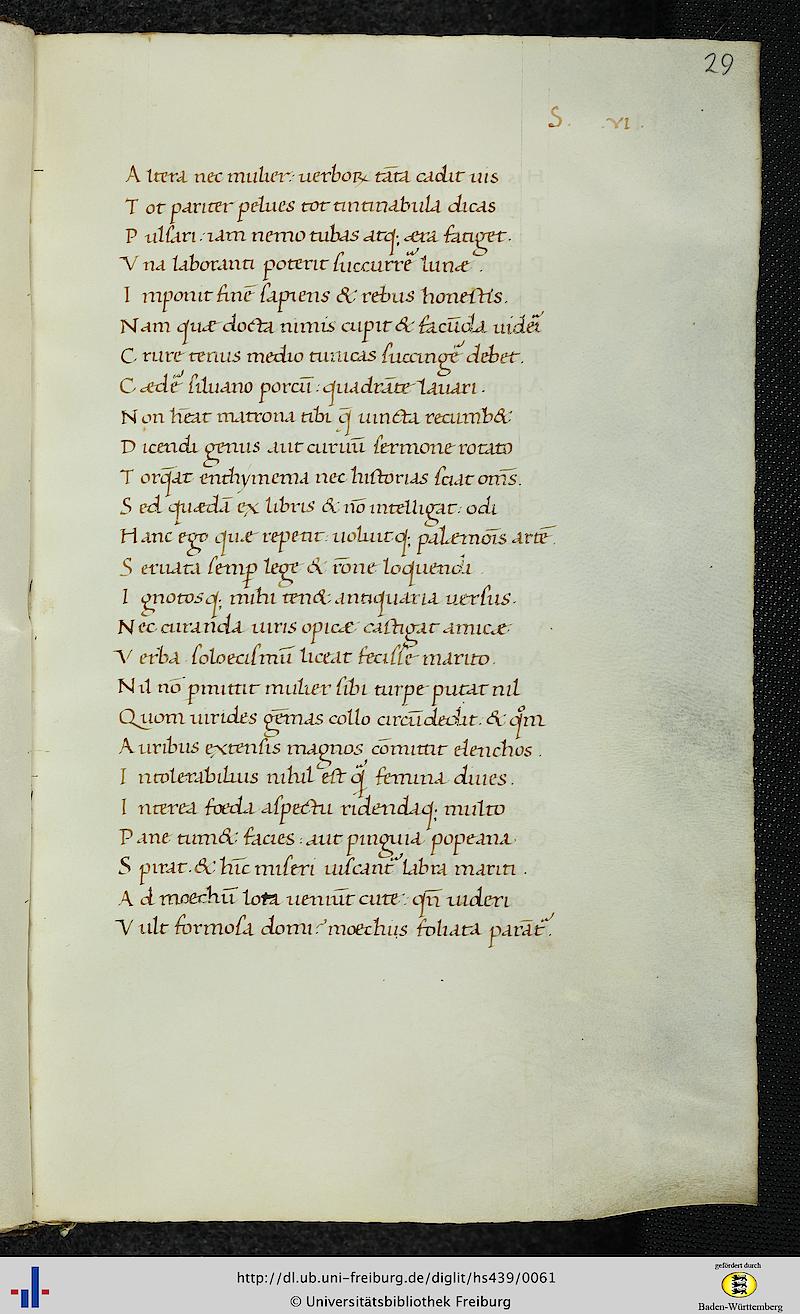 29
S. .VI.
Altera nec mulier: uerboꝝ tāta cadit uis
Tot pariter pelues tot tintinabula dicas
Pulſari. iam nemo tubas atq; æra fatiget.
Vna laboranti poterit ſuccurrē lunæ.
Imponit finē ſapiens & rebus honeſtis.
Nam quæ docta nimis cupit & facūda uideri
Crure tenus medio tunicas ſuccingē debet.
Cædē ſiluano porcū: quadrāte lauari.
Non hēat matrona tibi q̄ uincta recumb&
Dicendi genus aut curuū ſermone rotato
Torq̄at enthymema nec hiſtorias ſciat om̄s.
Sed quædā ex libris & nō intelligat: odi
Hanc ego quæ repetit: uoluitq; palæmōis artē.
Seruata ſemꝑ lege & rōne loquendi
Ignotosq; mihi ten& antiquaria uerſus.
Nec curanda uiris opicæ caſtigat amicæ
Verba ſoloeciſmū liceat feciſſe marito.
Nil nō ꝑmittit mulier ſibi turpe putat nil
Quom uirides gēmas collo circūdedit. & qͦm
Auribus extenſis magnos cōmittit elenchos.
Intolerabilius nihil eſt q̃ femina diues.
Interea foeda aſpectu ridendaq; multo
Pane tum& facies: aut pinguia popeana
Spirat. & hīc miſeri uiſcant᷑ labra mariti.
Ad moechū lota ueniūt cute: qn̄ uideri
Vult formoſa domi? moechis foliata parāt᷑.
http://dl.ub.uni-freiburg.de/diglit/hs439/0061
© Universitätsbibliothek Freiburg
gefördert durch
Baden-Württemberg